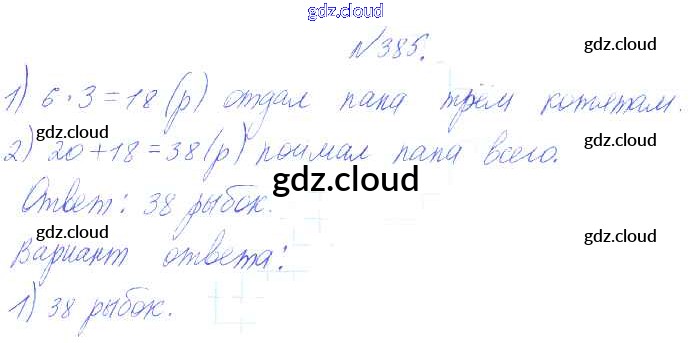 gdz.cloud
№385. gdz.cloud
1) 6·3=18(р) отдал папа трём котятам.
gdz.cloud gdz.cloud
2) 20+18=38(р) поймал папа всего.
gdz.cloud
Ответ: 38 рыбок.
gdz.cloud gdz.cloud
Вариант ответа:
1) 38 рыбок.